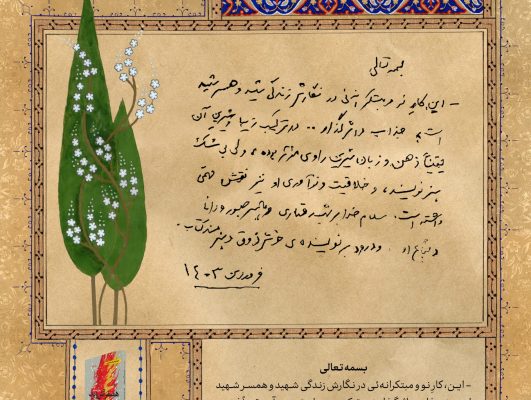 بسمه تعالی
- این، کارِ نو و مبتکرانه‌ئی در نگارش زندگی شهید و همسر شهید
است؛ جذاب و اثرگذار .. در ترکیب زیبا و شیرین آن
یقیناً ذهن و زبان شیرین راوی مؤثر بوده، ولی بی‌شک
هنر نویسنده، و خلاقیت و نوآوری او نیز نقش مهمی
داشته است. سلام خدا بر شهید و همسر صبور و دانا
و شجاع او. و درود بر نویسنده‌ی خوش‌ذوق و هنرمند کتاب.
فروردین ۱۴۰۳
بسمه تعالی
- این، کارِ نو و مبتکرانه‌ئی در نگارش زندگی شهید و همسر شهید